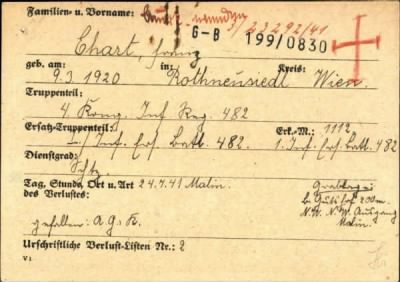 Familien- u. Vorname:
3/23292/41
G-B 199/0830
Chart, Franz
geb. am: in: Kreis:
9.3 1920 Rothneusiedl Wien
Truppenteil:
4. Komp. Inf. Reg. 482
Ersatz-Truppenteil: Erk.-M.: 1112
Inf. Ers. Batl. 482. 1. Inf. Ers. Batl. 482
Dienstgrad:
Schtz.
Tag, Stunde, Ort u. Art 24.7.41 Malin. Grablage:
des Verlustes: b. 200m.
N.W. Ausgang
gefallen: A.G.K. Malin.
Urschriftliche Verlust-Listen Nr.: 2
V 1